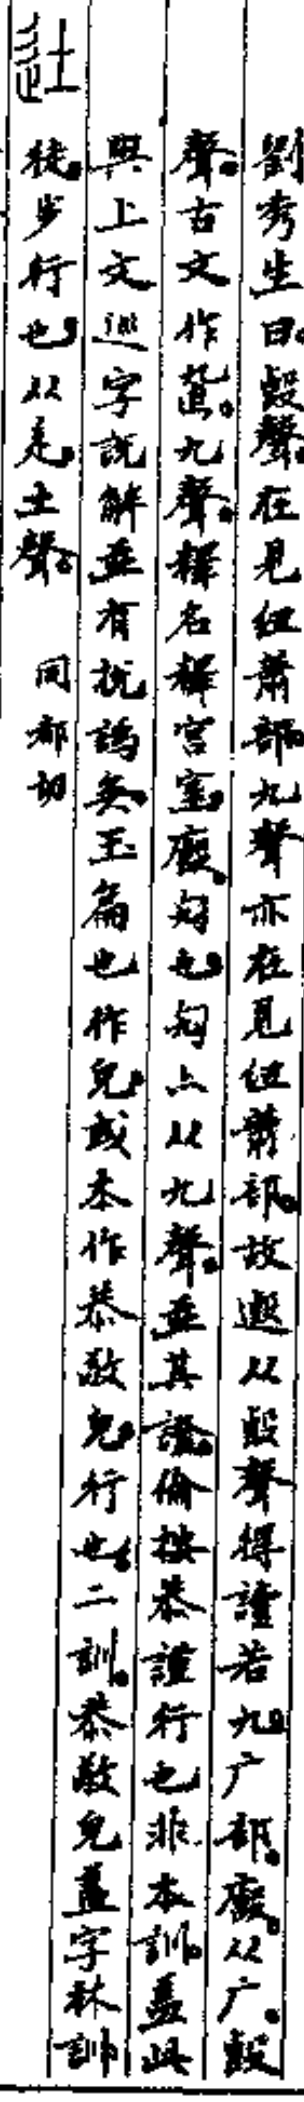 劉秀生曰。𣪘聲在見紐蕭部。九聲亦在見紐蕭部。故𨕙从𣪘聲得讀若九。广部。廄从广。𣪘
聲。古文作㲃。九聲。釋名釋宮室。廄。勼也。勼亦从九聲。並其證。倫按恭謹行也非本訓。蓋此
與上文巡字說解並有捝譌矣。玉篇也作皃。或本作恭敬皃。行也。二訓。恭敬皃蓋字林訓
徒步行也。从辵。土聲。 同都切